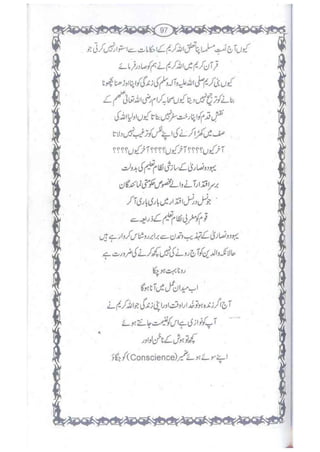 97
کیوں آج امتِ مسلمہ اپنا تعلق اللہ کریم کے احکامات سے استوار نہیں کرتی جو
قرآن کریم میں اللہ کریم نے ہم کو صادر فرمائے
کیوں نبی کریم صلی اللہ علیہ وآلہ وسلم کی زندگی کو اپنا اوڑھنا بچھونا
بنانے کو ترجیح نہیں دیتا کیوں صحابہ کرام رضی اللہ تعالیٰ عنھم کے
نقشِ قدم کو اپنا رختِ سفر نہیں بناتا کیوں اولیا اللہ کی
صف میں کھڑا کرنے کی اپنے نفس کو ترغیب نہیں دلاتا
آخر کیوں؟؟؟؟ آخر کیوں؟؟؟؟ آخر کیوں؟؟؟؟
یہود و نصاریٰ کے سازشی نظام تعلیم کی بدولت
برسرِ اقتدار آنے والے مخصوص حکومتی نمائندگان
جو نسل در نسل اقتدار میں باری باری آ کر
قوم کو مغربی نظام تعلیم کے ذریعہ سے
یہود و نصاریٰ کے تہذیب و تمدن سے برابر روشناس کروا رہے ہیں
حالانکہ والدین کو آج رونے کی نہیں کچھ کرنے کی ضرورت ہے
رونا بہت ہو چکا
اب میدانِ عمل میں آنا ہوگا
آج اگر زندہ ہو تو خدارا وقت اور اپنی زندگی جو اللہ کریم نے
آپ کو نوازی ہے اس کو غنیمت جانتے ہوئے
کچھ تو ہوش کے ناخن لو اور
اپنے سوئے ہوئے ضمیر (Conscience) کو جگاؤ